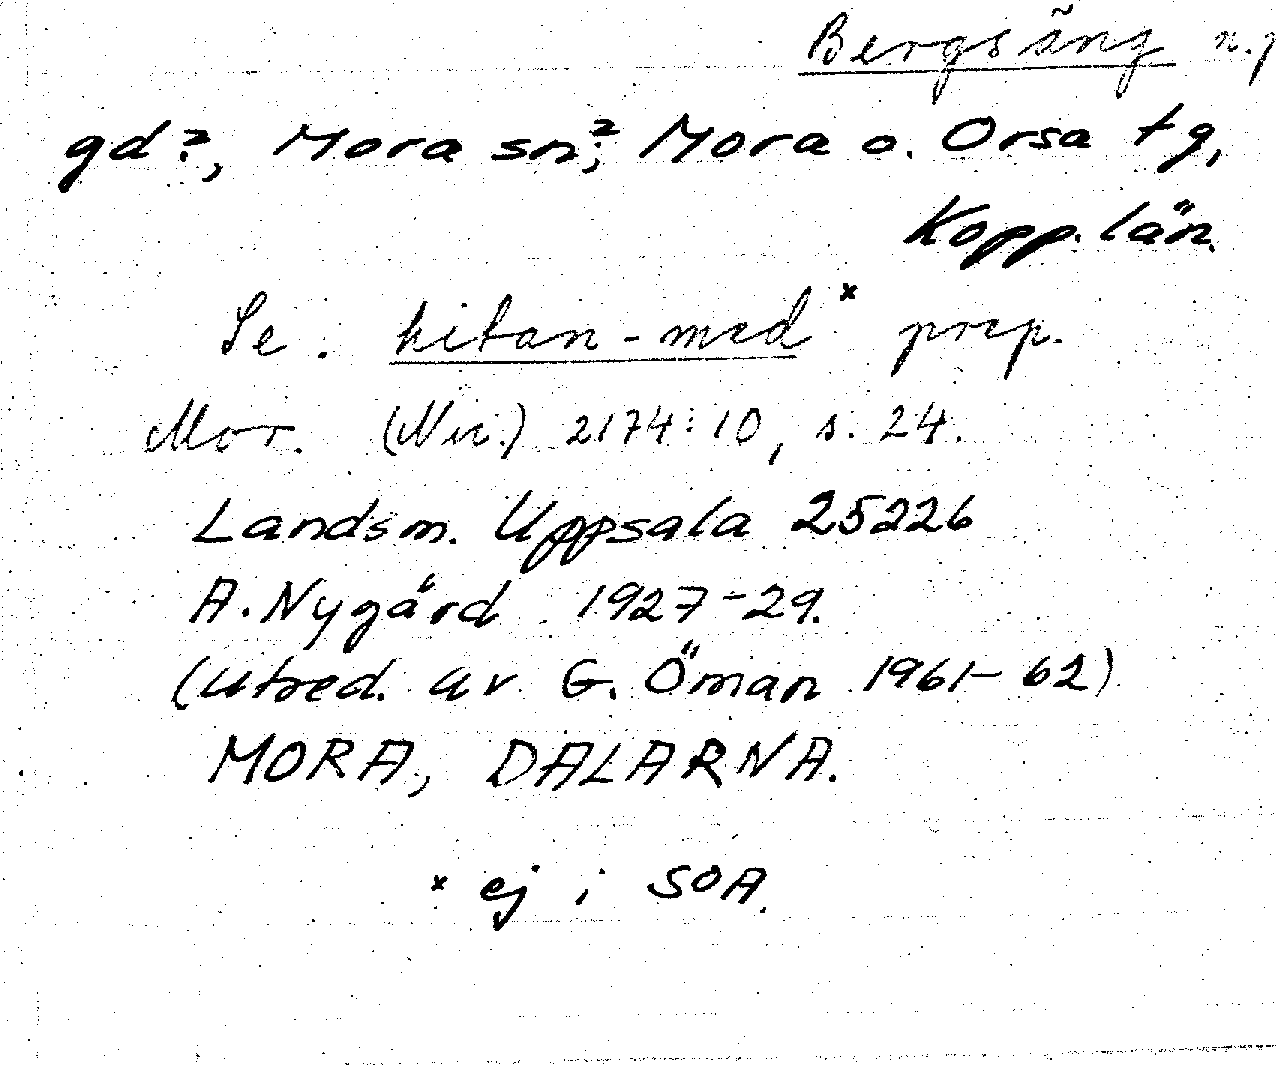 Bergsäng n.p
gd?, Mora sn?, Mora o. Orsa tg,
Kopp. län.
Se. hitan-med* prep.
Mor. 2174:10, s. 24.
Landsm. Uppsala 25226
A. Nygård 1927-29.
(Utred. av G. Öman 1961-62)
MORA, DALARNA.
* ej i SOA.